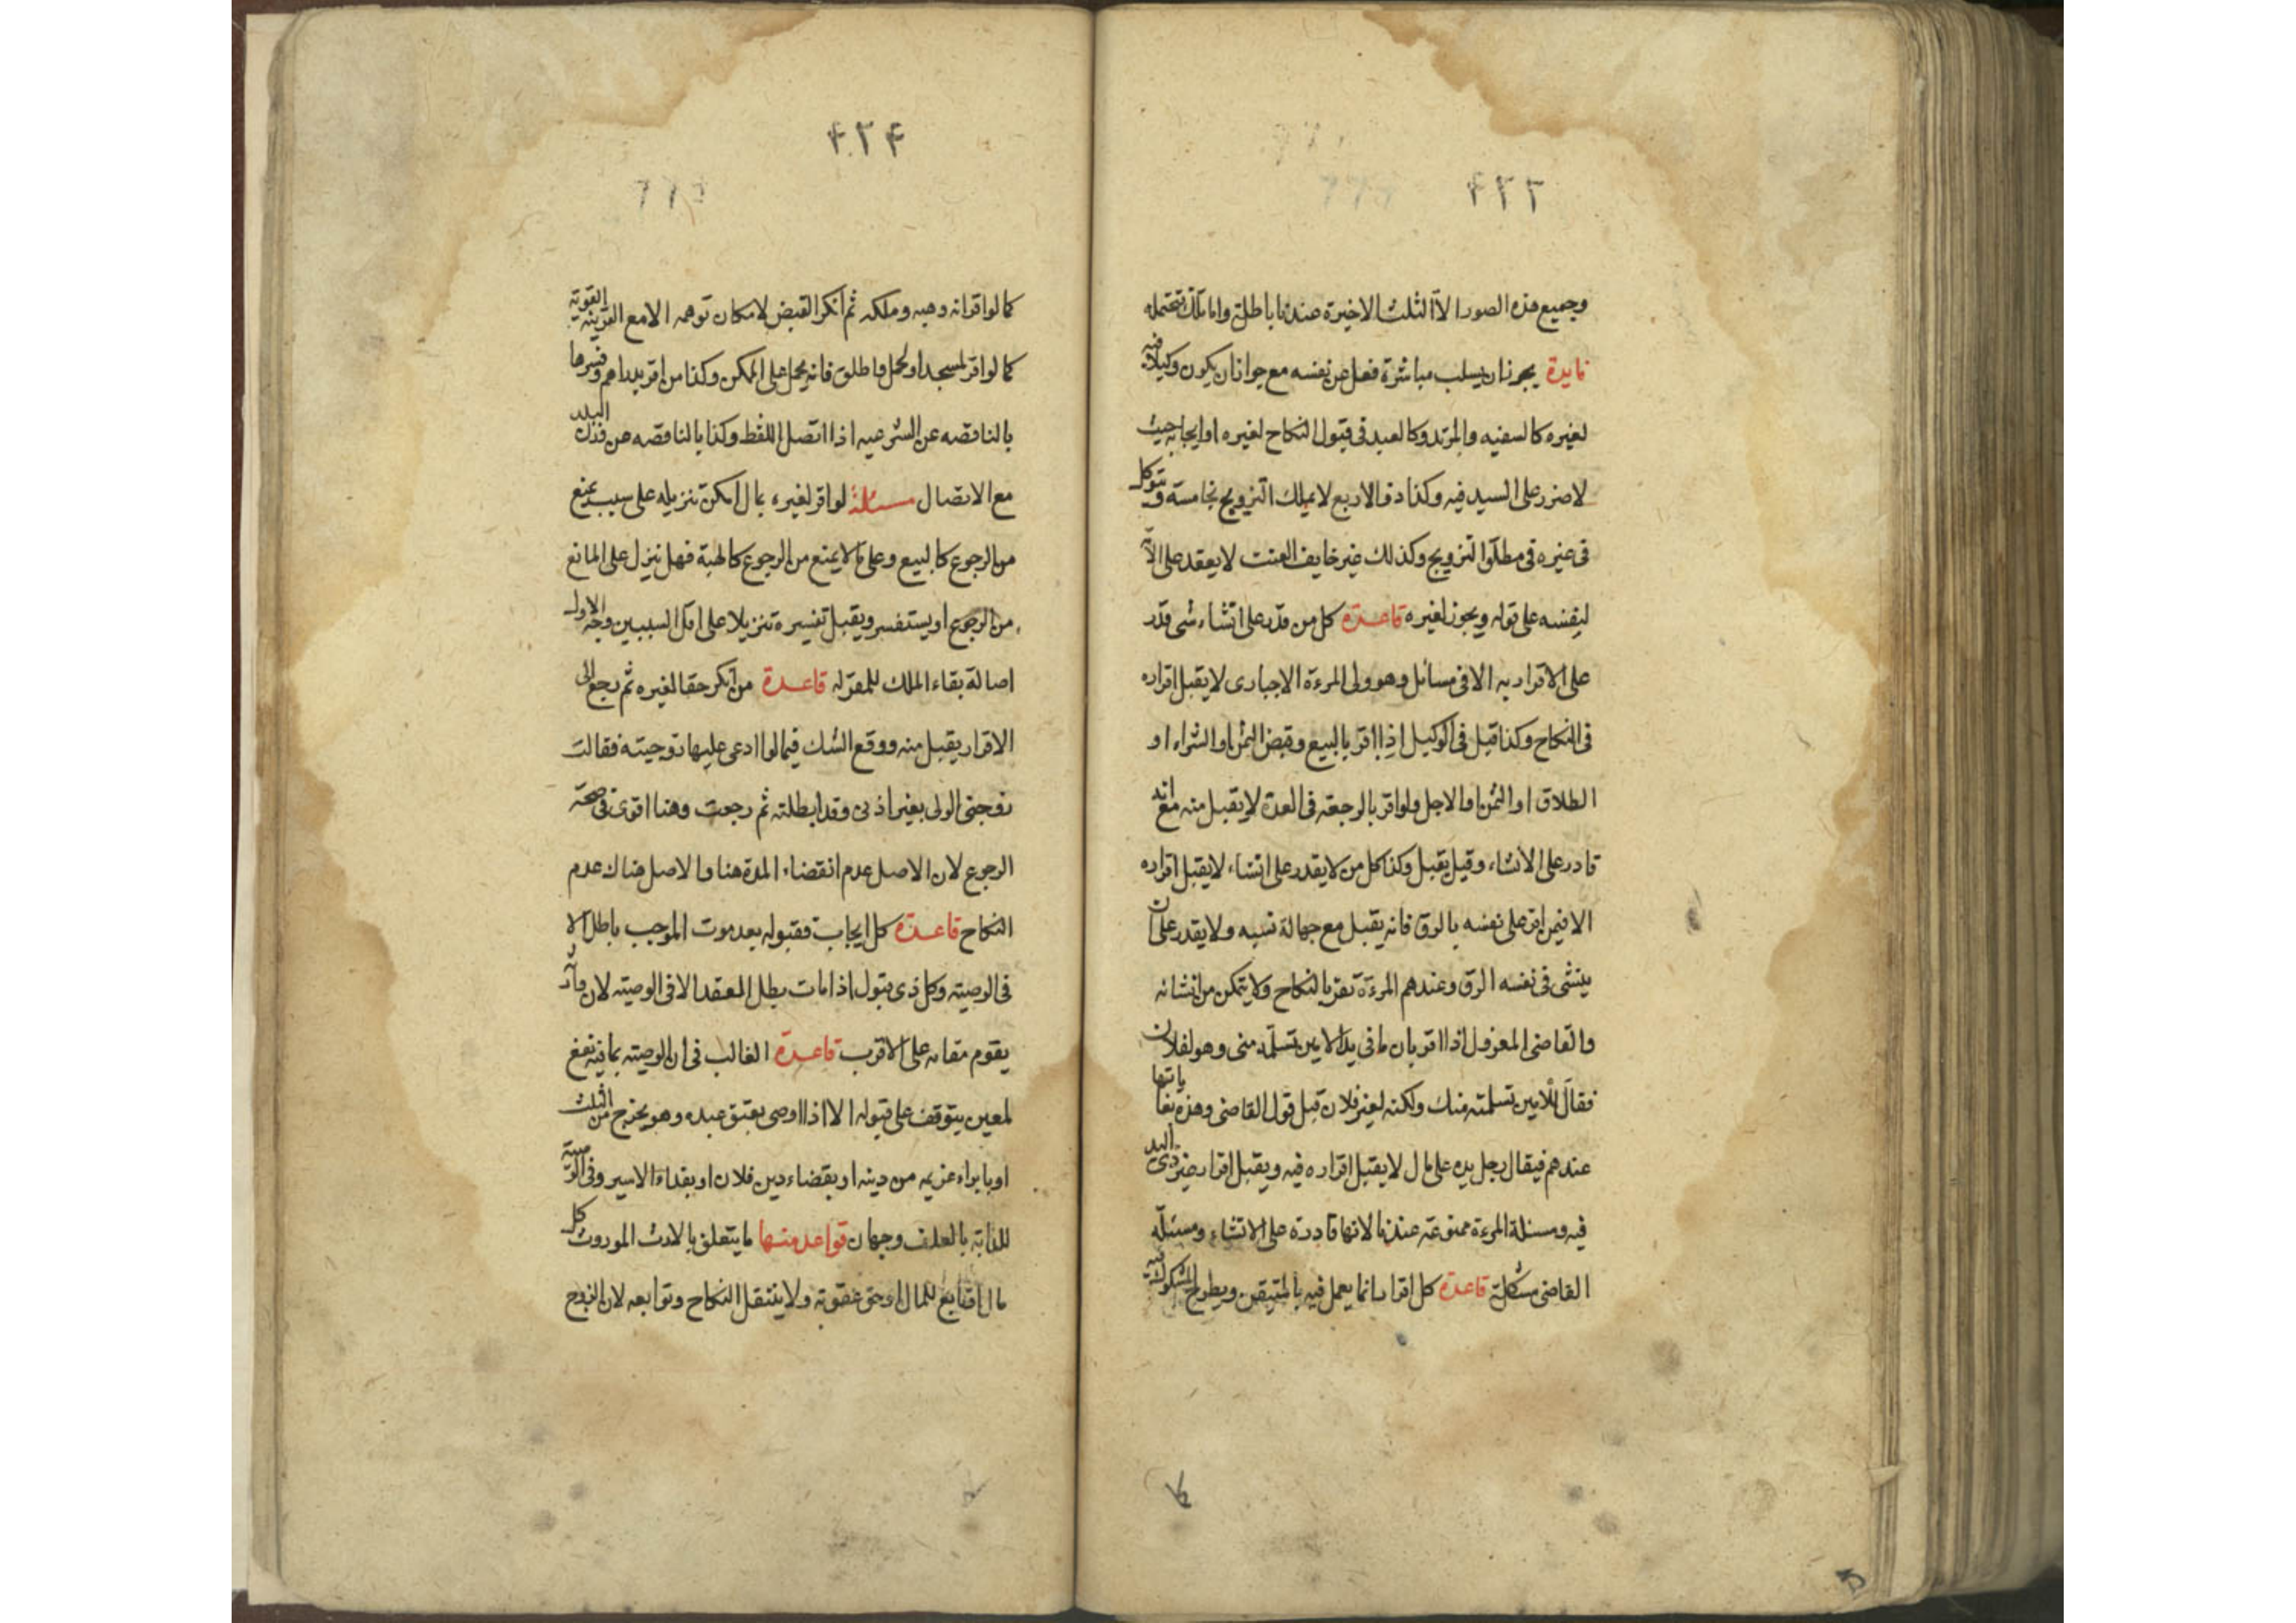 ٤٢٣
وجميع هذه الصور الا الثلث الاخيرة عندنا باطلة واما تلك فتحتمله
فايدة يجوز ان يسلب مباشرة فعل عن نفسه مع جواز ان يكون وكيلا فيه
لغيره كالسفيه والمرتد وكالعبد فى قبول النكاح لغيره او ايجابه حيث
لا ضرر على السيد فيه وكذا ذو الاربع لا يملك التزويج بخامسة ويتوكل
فى غيره فى مطلق التزويج وكذلك غير خايف العنت لا يعقد على الامة
لنفسه على قوله ويجوز لغيره قاعدة كل من قدر على انشاء شى قدر
على الاقرار به الا فى مسائل وهو ولى المرءة الاجبارى لا يقبل اقراره
فى النكاح وكذا قيل فى الوكيل اذا اقر بالبيع وقبض الثمن او الشراء او
الطلاق او الثمن او الاجل ولو اقر بالرجعة فى العدة لا يقبل منه مع انه
قادر على الانشاء وقيل يقبل وكذا كل من لا يقدر على انشاء لا يقبل اقراره
الا فيمن اقر على نفسه بالرق فانه يقبل مع جهالة نسبه ولا يقدر على ان
ينشى فى نفسه الرق وعندهم المرءة تقر بالنكاح ولا يتمكن من انشائه
والقاضى المعزول اذا اقر بان ما فى يد الامين تسلمه منى وهو لفلان
فقال الامين تسلمته منك ولكنه لغير فلان قبل قول القاضى وهذه يعايا بها
عندهم فيقال رجل يده على مال لا يقبل اقراره فيه ويقبل اقرار غير ذى اليد
فيه ومسئلة المرءة ممنوعة عندنا لانها قادرة على الانشاء ومسئلة
القاضى مشكلة قاعدة كل اقرار انما يعمل فيه بالمتيقن ويطرح المشكوك فيه
٤٢٤
كما لو اقر انه وهبه وملكه ثم انكر القبض لامكان توهمه الا مع القرينه القوية
كما لو اقر لمسجد او لحمل واطلق فانه يحمل على الممكن وكذا من اقر بدراهم وفسرها
بالناقصه عن الشرعيه اذا اتصل اللفظ وكذا بالناقصه عن وزن البلد
مع الاتصال مسئلة لو اقر لغيره بمال امكن تنزيله على سبب يمنع
من الرجوع كالبيع وعلى ما لا يمنع من الرجوع كالهبة فهل ينزل على المانع
من الرجوع او يستفسر ويقبل تفسيره تنزيلا على اقل السببين وجه الاول
اصالة بقاء الملك للمقر له قاعدة من انكر حقا لغيره ثم رجع الى
الاقرار يقبل منه ووقع الشك فيما لو ادعى عليها زوجيته فقالت
زوجنى الولى بغير اذنى وقد ابطلته ثم رجعت وهنا اقوى فى صحة
الرجوع لان الاصل عدم انقضاء المدة هنا والاصل هناك عدم
النكاح قاعدة كل ايجاب فقبوله بعد موت الموجب باطل الا
فى الوصية وكل ذى قبول اذا مات بطل العقد الا فى الوصيته لان وارثه
يقوم مقامه على الاقرب قاعدة الغالب فى ان الوصيته بما فيه نفع
لمعين يتوقف على قبوله الا اذا اوصى بعتق عبده وهو يخرج من الثلث
او بابراء غريمه من دينه او بقضاء دين فلان او بفداء الاسير وفى الوصية
للدابة بالعلف وجهان قواعد منها ما يتعلق بالارث الموروث كل
مال او تابع للمال او حق عقوبة ولا ينتقل النكاح وتوابعه لان الزوج